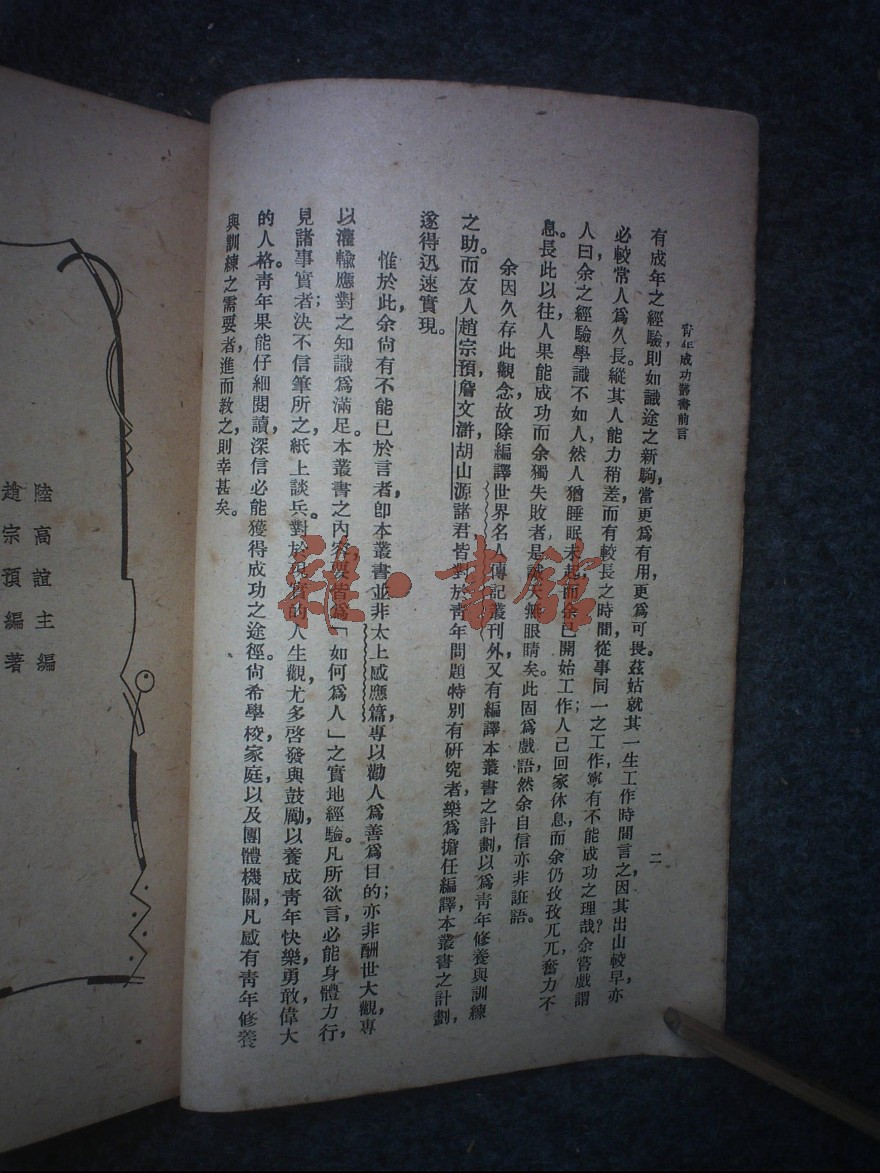 青年成功叢書前言
二
有成年之經驗，則如識途之新駒，當更爲有用，更爲可畏。茲姑就其一生工作時間言之，因其出山較早，亦
必較常人爲久長。縱其人能力稍差，而有較長之時間，從事同一之工作，寧有不能成功之理哉？余嘗戲謂
人曰，余之經驗學識不如人，然人猶睡眠未起，而余已開始工作；人已回家休息，而余仍孜孜兀兀，奮力不
息。長此以往，人果能成功，而余獨失敗者，是誠天無眼睛矣。此固爲戲語，然余自信亦非誑語。
余因久存此觀念，故除編譯世界名人傳記叢刊外，又有編譯本叢書之計劃，以爲青年修養與訓練
之助。而友人趙宗預，詹文滸，胡山源諸君，皆對於青年問題特別有研究者，樂爲擔任編譯，本叢書之計劃，
遂得迅速實現。
惟於此，余尚有不能已於言者，卽本叢書並非太上感應篇，專以勸人爲善爲目的；亦非酬世大觀，專
以灌輸應對之知識爲滿足。本叢書之內容，要皆爲「如何爲人」之實地經驗。凡所欲言，必能身體力行，
見諸事實者；決不信筆所之，紙上談兵。對於現實的人生觀，尤多啓發與鼓勵，以養成青年快樂，勇敢，偉大
的人格。青年果能仔細閱讀，深信必能獲得成功之途徑。尚希學校，家庭，以及團體機關，凡感有青年修養
與訓練之需要者，進而教之，則幸甚矣。
陸高誼主編
趙宗預編著
雜·書館